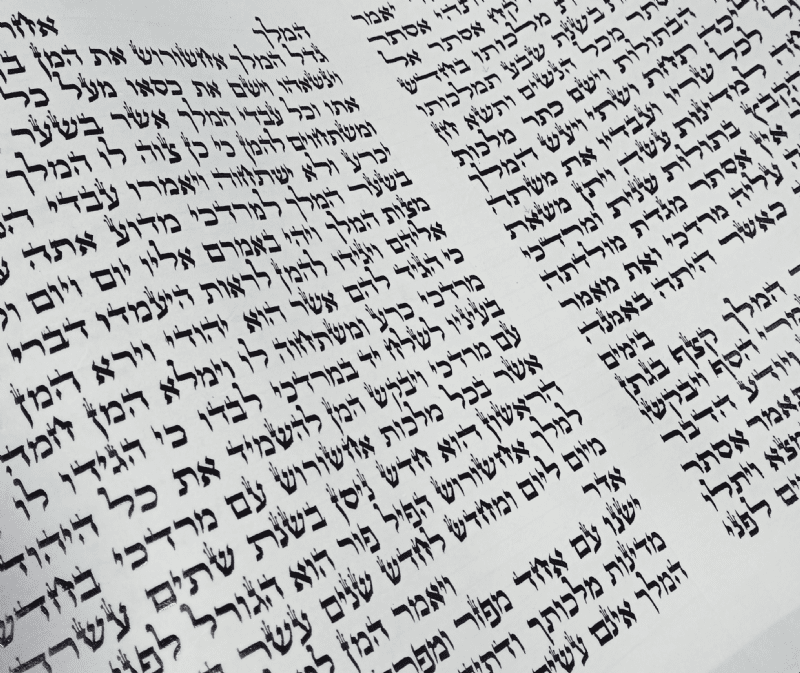 יאמר
אסתר
אסתר אל
מלכותו בחדש
בשנת שבע למלכותו
אסתר מכל הנשים ותשא חן
הבתולות וישם כתר מלכות
תחת ושתי ויעש המלך
לכל שריו ועבדיו את משתה
למדינות עשה ויתן משאת
בתולות שנית ומרדכי
אין אסתר מגדת מולדתה
עליה מרדכי ואת מאמר
כאשר היתה באמנה
בימים
המלך קצף בגתן
הסף ויבקשו
ויודע הדבר
ותאמר אסתר
וימצא ויתלו
לפני
המלך
גדל המלך אחשורוש את המן בן
וינשאהו וישם את כסאו מעל כל
אתו וכל עבדי המלך אשר בשער
ומשתחוים להמן כי כן צוה לו המלך
יכרע ולא ישתחוה ויאמרו עבדי
בשער המלך למרדכי מדוע אתה
מצות המלך ויהי באמרם אליו יום ויום
אליהם ויגידו להמן לראות היעמדו דברי
כי הגיד להם אשר הוא יהודי וירא המן
מרדכי כרע ומשתחוה לו וימלא המן חמה
בעיניו לשלח יד במרדכי לבדו כי הגידו לו
עם מרדכי ויבקש המן להשמיד את כל היהוד
אשר בכל מלכות אחשורוש עם מרדכי בחדש
הראשון הוא חדש ניסן בשנת שתים עשרה
למלך אחשורוש הפיל פור הוא הגורל לפני
מיום ליום ומחדש לחדש שנים עשר
אדר ויאמר המן
ישנו עם אחד מפזר ומפרד
מדינות מלכותך
המלך אינם עשים